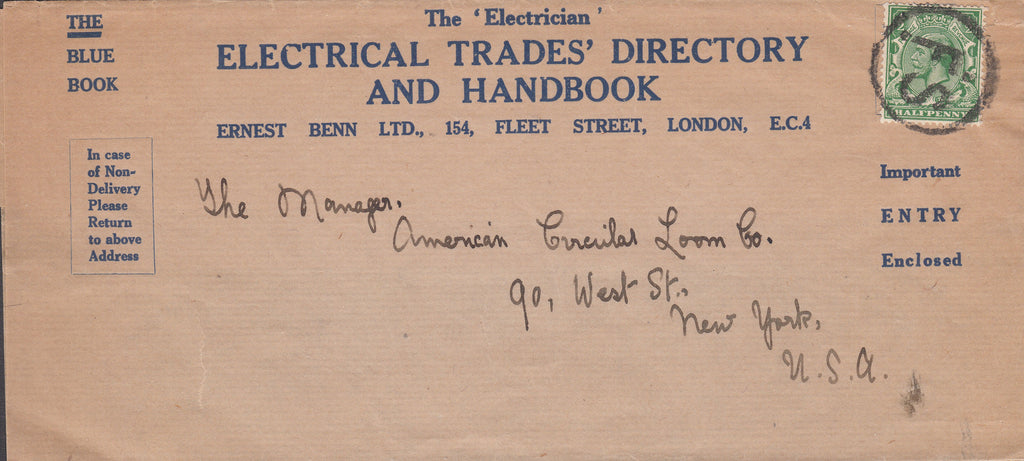 THE
BLUE
BOOK
The 'Electrician'
ELECTRICAL TRADES' DIRECTORY
AND HANDBOOK
ERNEST BENN LTD., 154, FLEET STREET, LONDON, E.C.4
HALFPENNY
In case
of Non-
Delivery
Please
Return
to above
Address
Important
ENTRY
Enclosed
The Manager.
American Circular Loom Co.
90, West St.,
New York,
U.S.A.